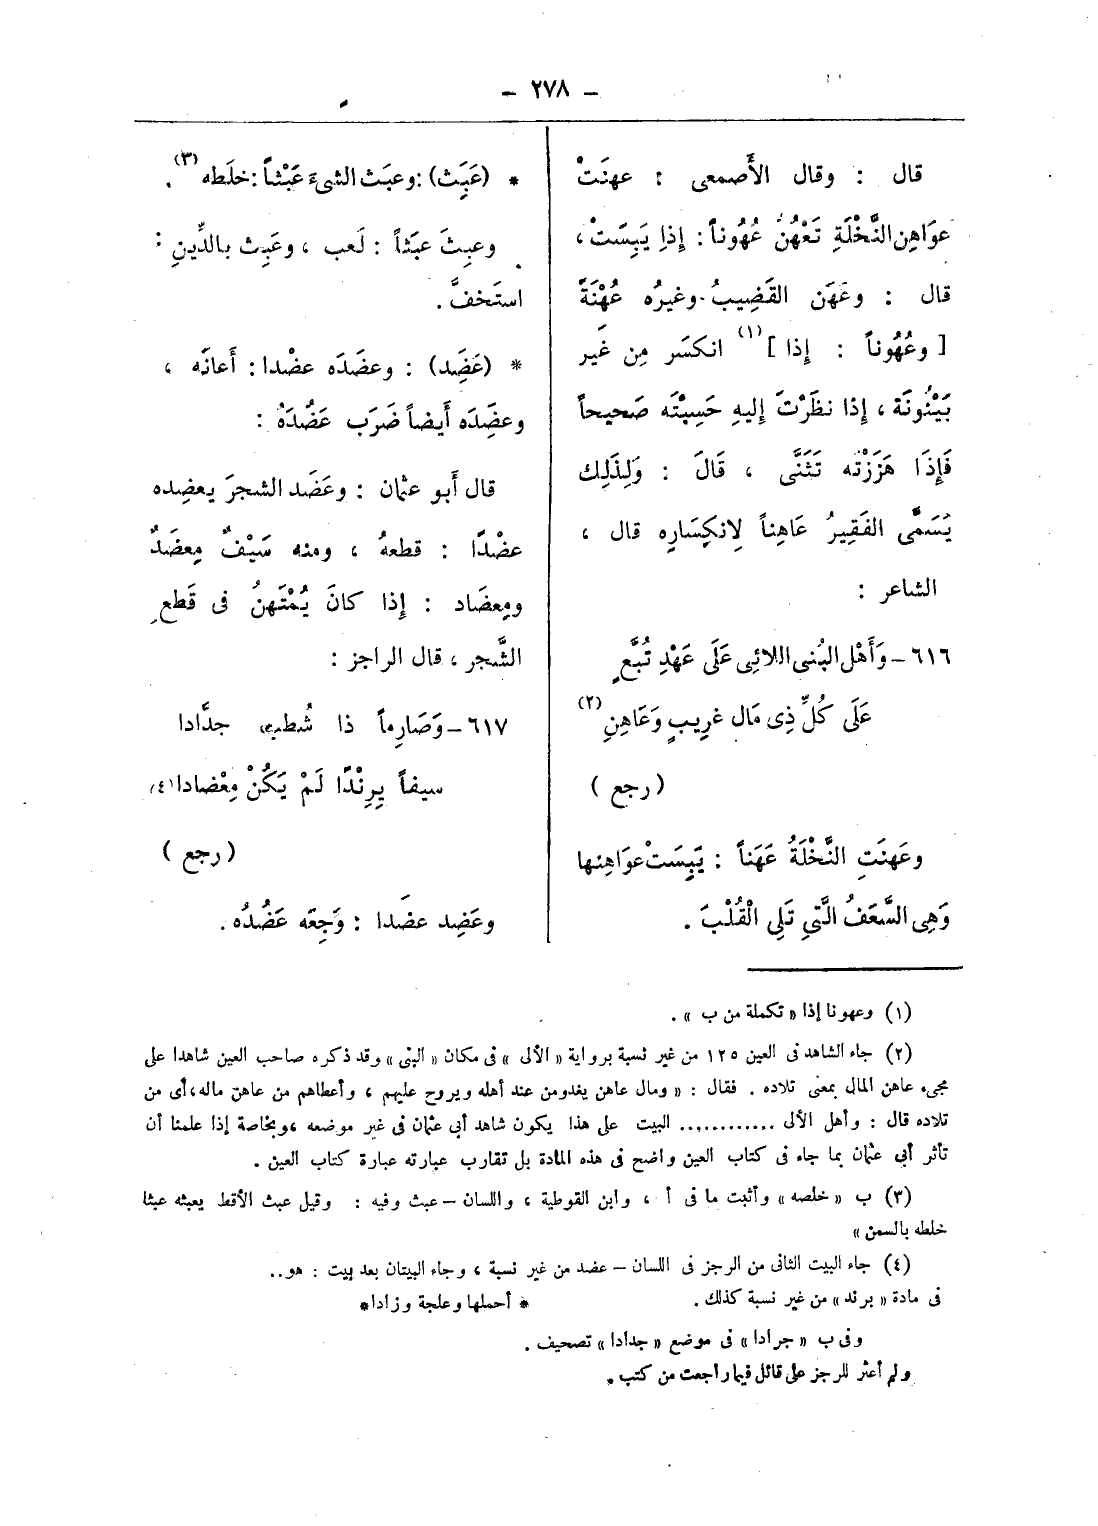 – ٢٧٨ –
قال : وقال الأَصمعى : عهنَتْ
عوَاهِن النَّخْلَةِ تَعْهُنُ عُهُوناً : إِذا يَبِسَتْ ،
قال : وعَهَن القَضِيبُ وغيرُه عُهْنَةً
[ وعُهُوناً : إِذا ] (١) انكسَر مِن غَير
بَيْنُونَة ، إِذا نظَرْتَ إِليهِ حَسِبْتَه صَحيحاً
فَإِذَا هَزَزْتَه تَثَنَّى ، قَالَ : وَلِذَلِك
يُسَمَّى الفَقِيرُ عَاهِناً لِانكِسَارِه قال ،
الشاعر :
٦١٦ – وَأَهْل البُنى اللائِى عَلَى عَهْدِ تُبَّعٍ
عَلَى كُلِّ ذِى مَال غرِيبٍ وَعَاهِنِ (٢)
( رجع )
وعَهِنَتِ النَّخْلَةُ عَهَناً : يَبِسَتْ عوَاهِنها
وَهِى السَّعَفُ الَّتِي تَلِى الْقُلْبَ .
* (عَبِث) : وعبَث الشىءَ عَبْثاً : خلَطه (٣) .
وعبِثَ عبَثاً : لَعب ، وعَبِث بالدِّينِ :
استَخفَّ .
* (عَضِد) : وعضَدَه عضْدا : أَعانَه ،
وعضَدَه أَيضاً ضَرَب عَضُدَهُ :
قال أَبو عثمان : وعَضَد الشجرَ يعضِده
عضْدًا : قطعهُ ، ومنه سَيْفٌ مِعضَدٌ
ومِعضَاد : إِذا كانَ يُمْتَهنُ فى قَطعِ
الشَّجر ، قال الراجز :
٦١٧ – وَصَارِماً ذا شُطَبٍ جدَّادا
سيفاً بِرِنْدًا لَمْ يَكُنْ مِعْضادا (٤)
( رجع )
وعَضِد عضَدا : وَجِعَه عَضُدُه .
(١) وعهونا إذا « تكملة من ب » .
(٢) جاء الشاهد فى العين ١٢٥ من غير نسبة برواية « الألى » فى مكان « البنى » وقد ذكره صاحب العين شاهدا على
مجىء عاهن المال بمعنى تلاده . فقال : « ومال عاهن يغدو من عند أهله ويروح عليهم ، وأعطاهم من عاهن ماله ، أى من
تلاده قال : وأهل الألى ............ البيت على هذا يكون شاهد أبى عثمان فى غير موضعه ، وبخاصة إذا علمنا أن
تأثر أبى عثمان بما جاء فى كتاب العين واضح فى هذه المادة بل تقارب عبارته عبارة كتاب العين .
(٣) ب « خلصه » وأثبت ما فى أ ، وابن القوطية ، واللسان – عبث وفيه : وقيل عبث الأقط يعبثه عبثا
خلطه بالسمن »
(٤) جاء البيت الثانى من الرجز فى اللسان – عضد من غير نسبة ، وجاء البيتان بعد بيت : هو..
فى مادة « برند » من غير نسبة كذلك . * أحملها وعلجة وزادا *
وفى ب « جرادا » فى موضع « جدادا » تصحيف .
ولم أعثر للرجز على قائل فيما راجعت من كتب .